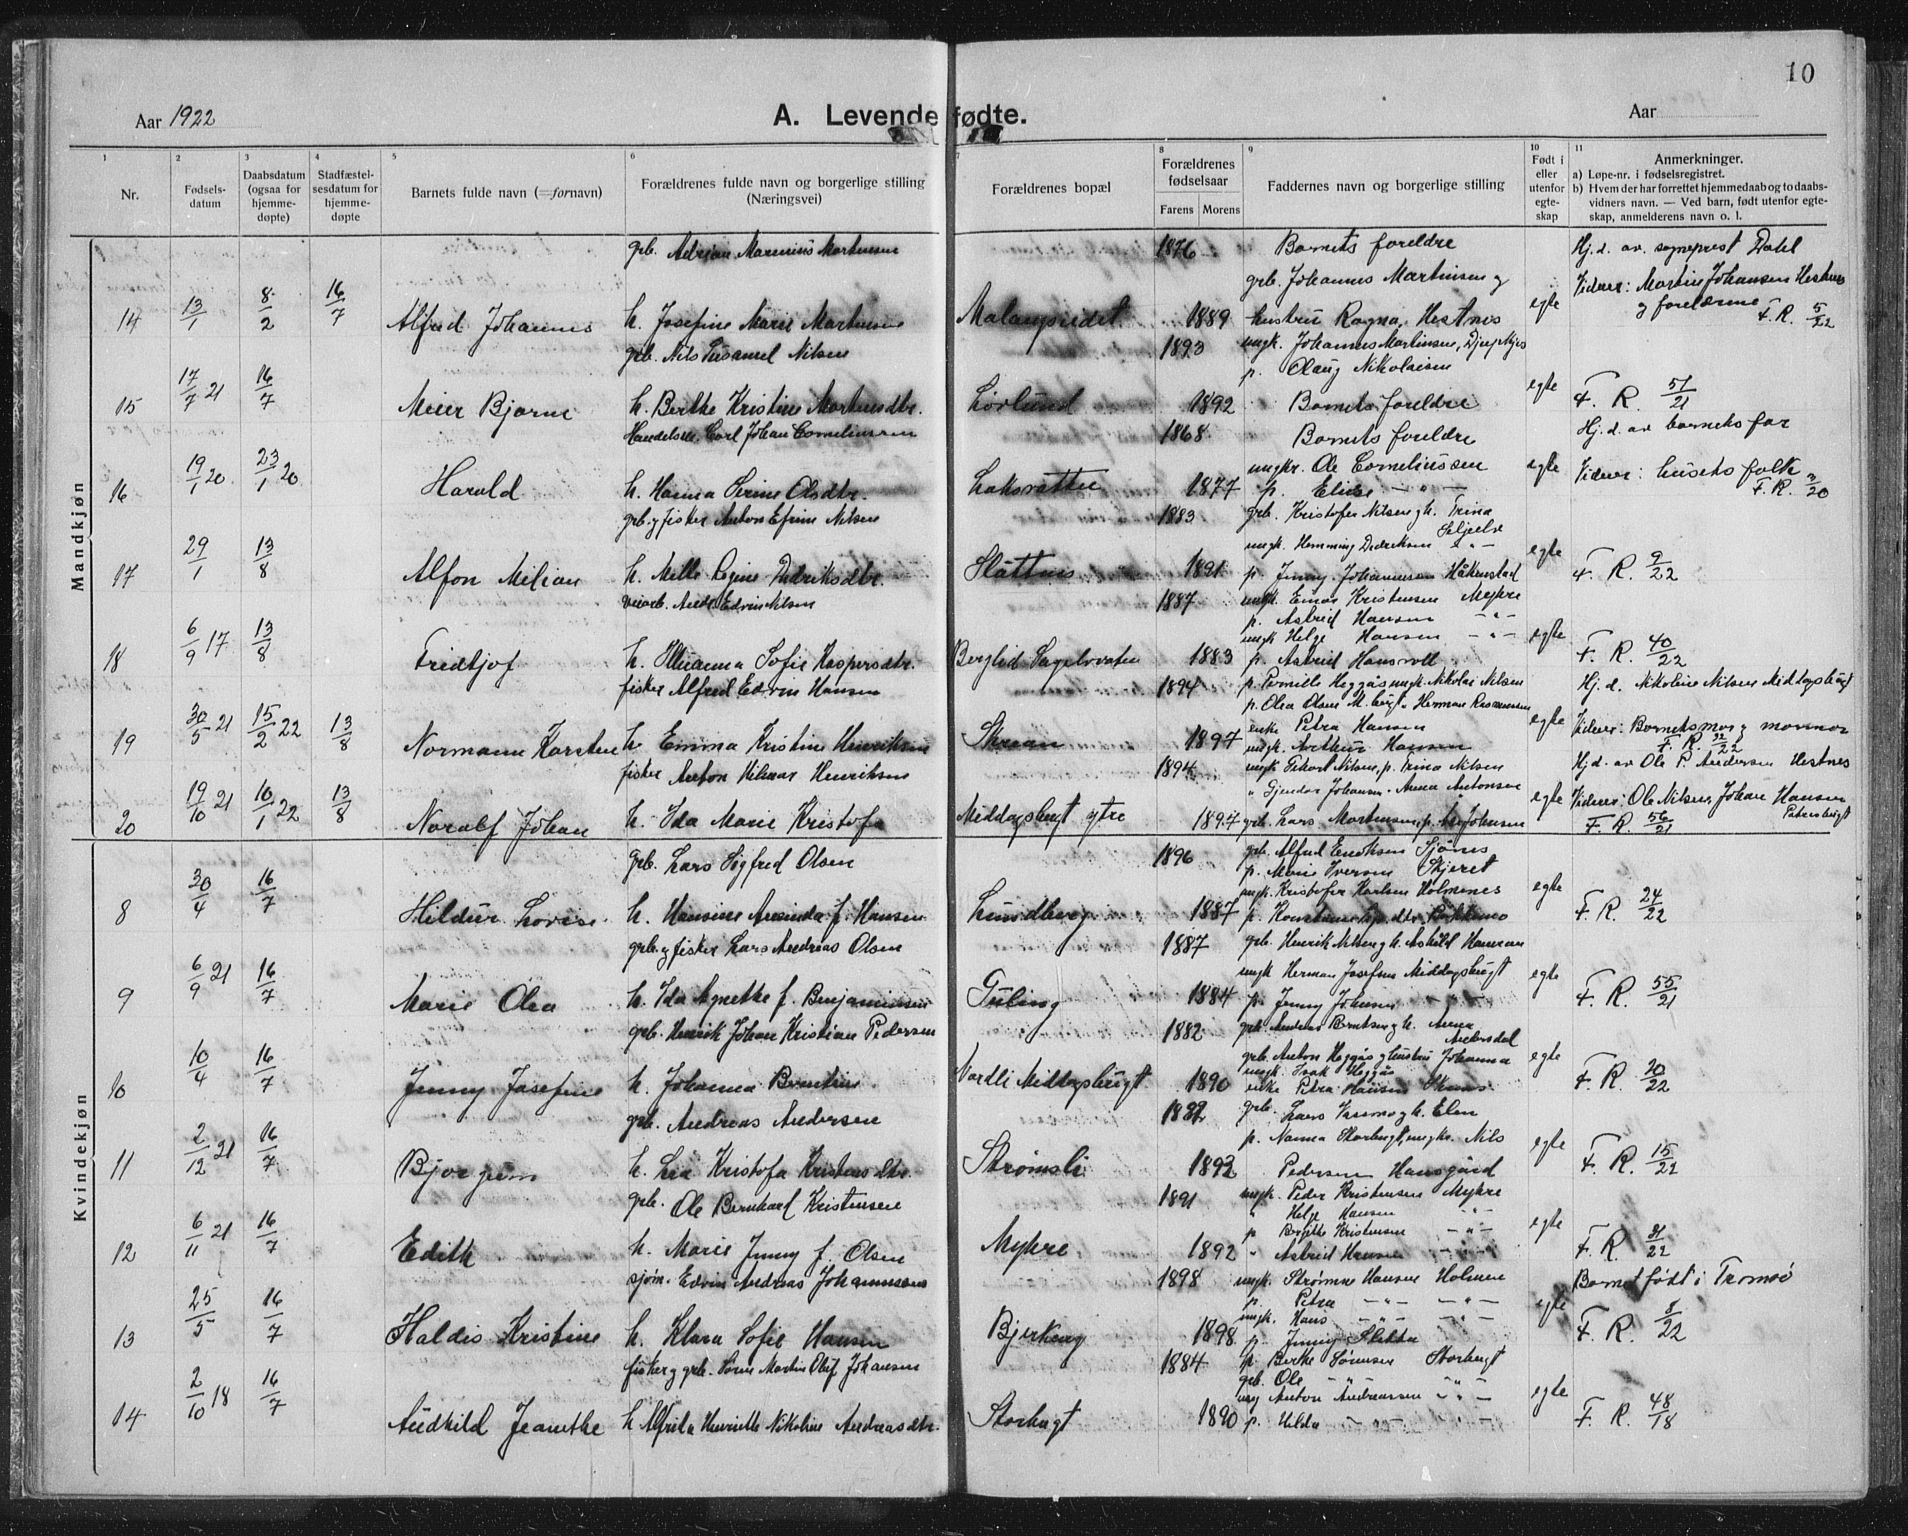 10
Aar 1922
A. Levendefødte.
Aar
1 2 3 4 5 6 7 8 9 10 11
Nr.
Fødsels-
datum
Daabsdatum
(ogsaa for
hjemme-
døpte)
Stadfæstel-
sesdatum for
hjemme-
døpte
Barnets fulde navn (=fornavn)
Forældrenes fulde navn og borgerlige stilling
(Næringsvei)
Forældrenes bopæl
Forældrenes
fødselsaar
Farens Morens
Faddernes navn og borgerlige stilling
Født i
eller
utenfor
egte-
skap
Anmerkninger.
a) Løpe-nr. i fødselsregistret.
b) Hvem der har forrettet hjemmedaab og to daabs-
vidners navn. — Ved barn, født utenfor egte-
skap, anmelderens navn o. l.
Mandkjøn
grb. Adrian Marinius Martinsen 1876 Barnets foreldre Hj.d. av sogneprest Dahl
grb. Johannes Martinsen og Vidner: Martin Johansen Hestnes
14 13/1 8/2 16/7 Alfred Johannes h. Josefine Marie Martinsen Malangseidet 1889 hustru Ragna, Hestnes egte og foreldrene F.R. 5/22
grb. Nils Nilsen 1893 ungk. Johannes Martinsen,
p. Olaug Nikolaisen
15 17/7 21 16/7 Meier Bjarne h. Berthe Kristine Mortensdtr. Lørlund 1892 Barnets foreldre egte F. R. 51/21
Handelsm. Carl Johan Corneliussen 1868 Barnets foreldre Hj.d. av barnets far
ungkr. Ole Corneliussen
16 19/1 20 23/1 20 Harald h. Hanna Serine Olsdtr. Laksvatten 1877 p. Elise — " — egte Vidner: husets folk F.R. 2/20
grb. og fisker Anton Efrim Nilsen 1883 grb. Kristofer Nilsen og h. Trina
Seljelv
ungk. Hemming Dedriksen — " —
17 29/1 13/8 Alfon Milian h. Mille Regine Didriksdtr. Slåttnes 1891 p. Jenny Johannesen Håkenstad egte F. R. 9/22
veiarb. Andr. Edvin Nilsen 1887 ungk. Einar Kristensen Myhre
p. Astrid Hansen — " —
ungk Helge Hansen — " —
18 6/9 17 13/8 Fridtjof h. Sofie Kaspersdtr. Berglid Sagelvvatn 1883 p. Astrid egte F. R. 40/22
fisker Alfred Edvin Hansen 1894 p. Pernille Heggås ungk. Nikolai Nilsen Hj. d. Nikoline Nilsen Middagsbugt
p. Olea Olsen M.bugt " Herman Rasmussen
enke Petra Hansen
19 30/5 21 15/2 22 13/8 Normann Karsten h. Emma Kristine Henriksen Skaan 1897 ungk. Arthur Hansen egte Vidner: Barnets mor og mormor
F. R. 22/22
fisker Anton Hilmar Henriksen 1894 ungk Nilsen, p. Trina Nilsen Hj.d. av Ole P. Andersen Hestnes
" Johansen. Anna Antonsen
20 19/10 21 10/1 22 13/8 Noralf Johan h. Ida Marie Kristofa Middagsbugt ytre 1897 grb. Lars Martinsen, p. Johnsen egte Vidner: Ole Nilsen, Johan Hansen
F. R. 56/21
Kvindekjøn
grb. Lars Sigfred Olsen 1896 grb. Alfred Eriksen Sjønes
p. Marie Iversen Skjeret
ungk. Kristofer Karlsen Holmenes
8 30/4 16/7 Hildur Lovise h. Hansine Aminda f. Hansen Lundberg 1887 p. egte F. R. 24/22
grb. og fisker Lars Andreas Olsen 1887 grb. Henrik Nilsen og h. Hansen
ungk Herman Josefsen Middagsbugt
9 6/9 21 16/7 Marie Olea h. Ida Agnethe f. Benjaminsen 1884 p. Jenny Johnsen — " — egte F. R. 55/21
grb. Henrik Johan Kristian Pedersen 1882 grb. Andreas Berntsen og h. Anna
Andersdal
grb. Anton Heggås og hustru Johanna
ungk. Isak Heggås
10 10/4 16/7 Jenny Josefine h. Johanna Berntine Nordli Middagsbugt 1890 enke Petra Hansen egte F. R. 20/22
grb. Andreas Andersen 1882 grb. Lars og h. Elen
p. Nanna Storbugt, ungkr. Nils
11 2/12 21 16/7 Bjorgun h. Lea Kristofa Kristensdtr. Strømsli 1892 Pedersen Hansgård egte F. R. 15/22
grb. Ole Bernhard Kristensen 1891 ungk. Peder Kristensen Myhre
" Helge Hansen — " —
p. Birgitte Kristensen — " —
12 6/11 21 16/7 Edith h. Marie Jenny f. Olsen Myhre 1892 " Astrid Hansen — " — egte F. R. 31/22
sjøm. Edvin Andreas Johannessen 1898 ungk. Strømne Hansen Holmen Barnet født i Tromsø
p. Petra — " — — " —
ungk. Hans — " — — " —
13 25/5 16/7 Haldis Kristine h. Klara Sofie Hansen Bjerkeng 1898 p. Jenny Sletta egte F. R. 8/22
fisker og grb. Søren Martin Olif Johansen 1884 p. Berthe Sørensen Storbugt
grb. Ole — " — — " —
ung Anton Andreassen — " —
14 2/10 18 16/7 Audhild Jeanthe h. Alfrida Henriette Nikoline Andreasdtr. Storbugt 1890 p. Hilda — " — — " — egte F. R. 48/18